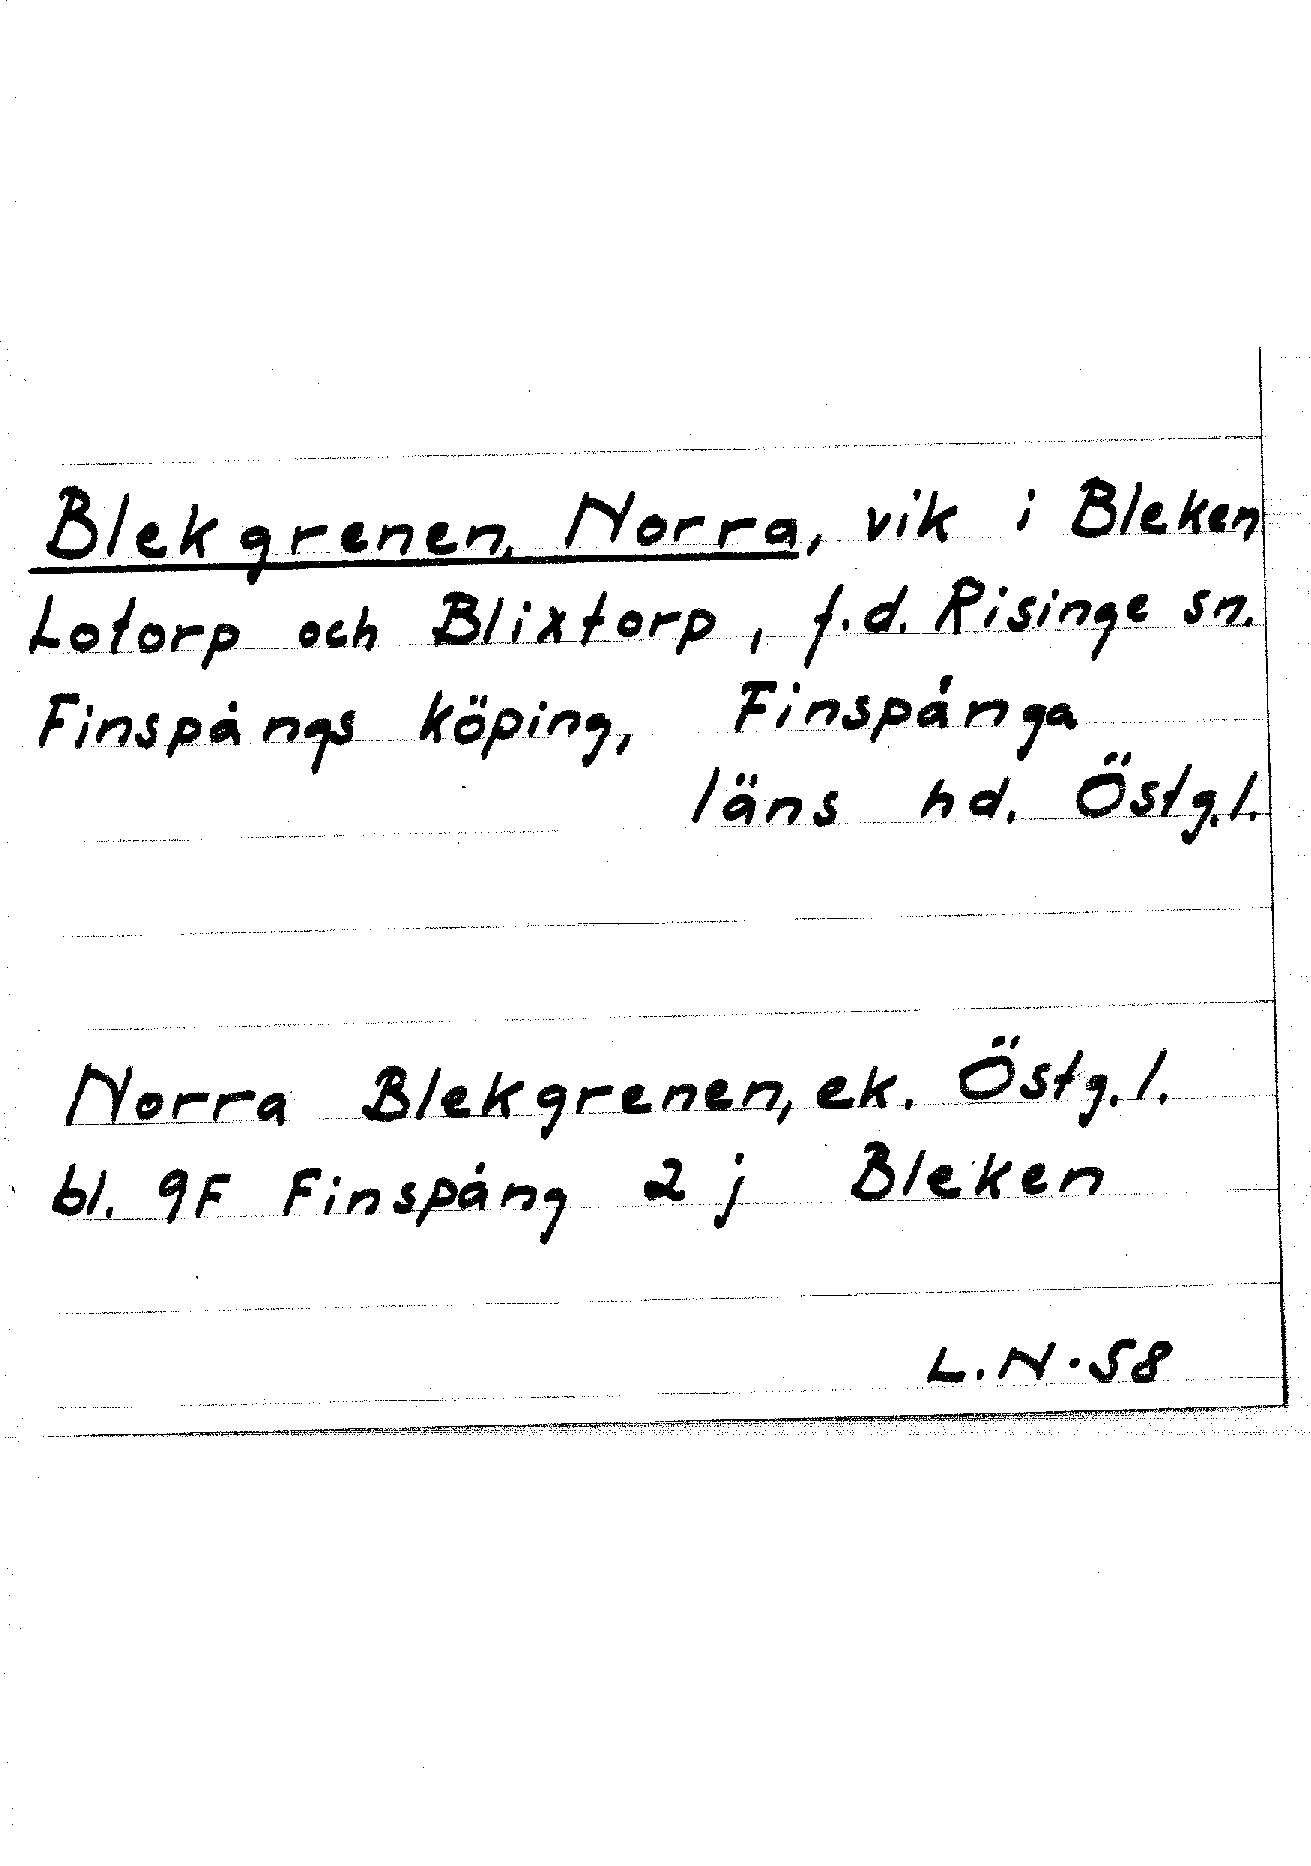 Blekgrenen, Norra, vik i Bleken
Lotorp och Blixtorp, f.d. Risinge sn.
Finspångs köping, Finspånga
läns hd. Östg.l.
Norra Blekgrenen, ek. Östg.l.
bl. 9F Finspång 2 j Bleken
L.N.58